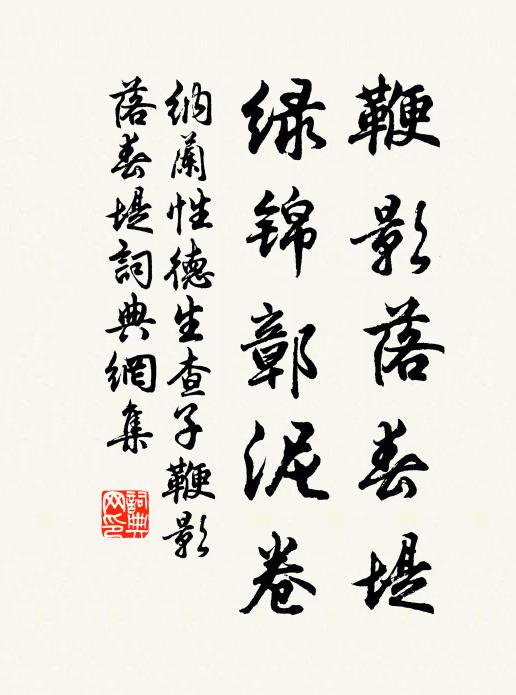 鞭影落春堤
绿锦鄣泥卷
纳兰性德生查子鞭影
落春堤詞典網集
詞典
网印